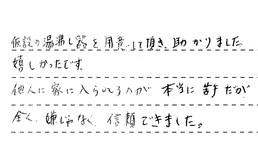 仮設の湯沸し器を用意して頂き、助かりました
嬉しかったです。
他人に家に入られるのが本当に苦手だが
全く、嫌じゃなく、信頼できました。